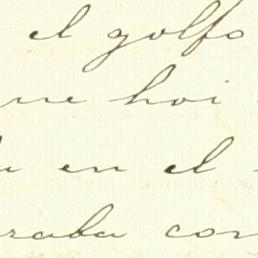 el golfo
ne hoi
en el
raba con